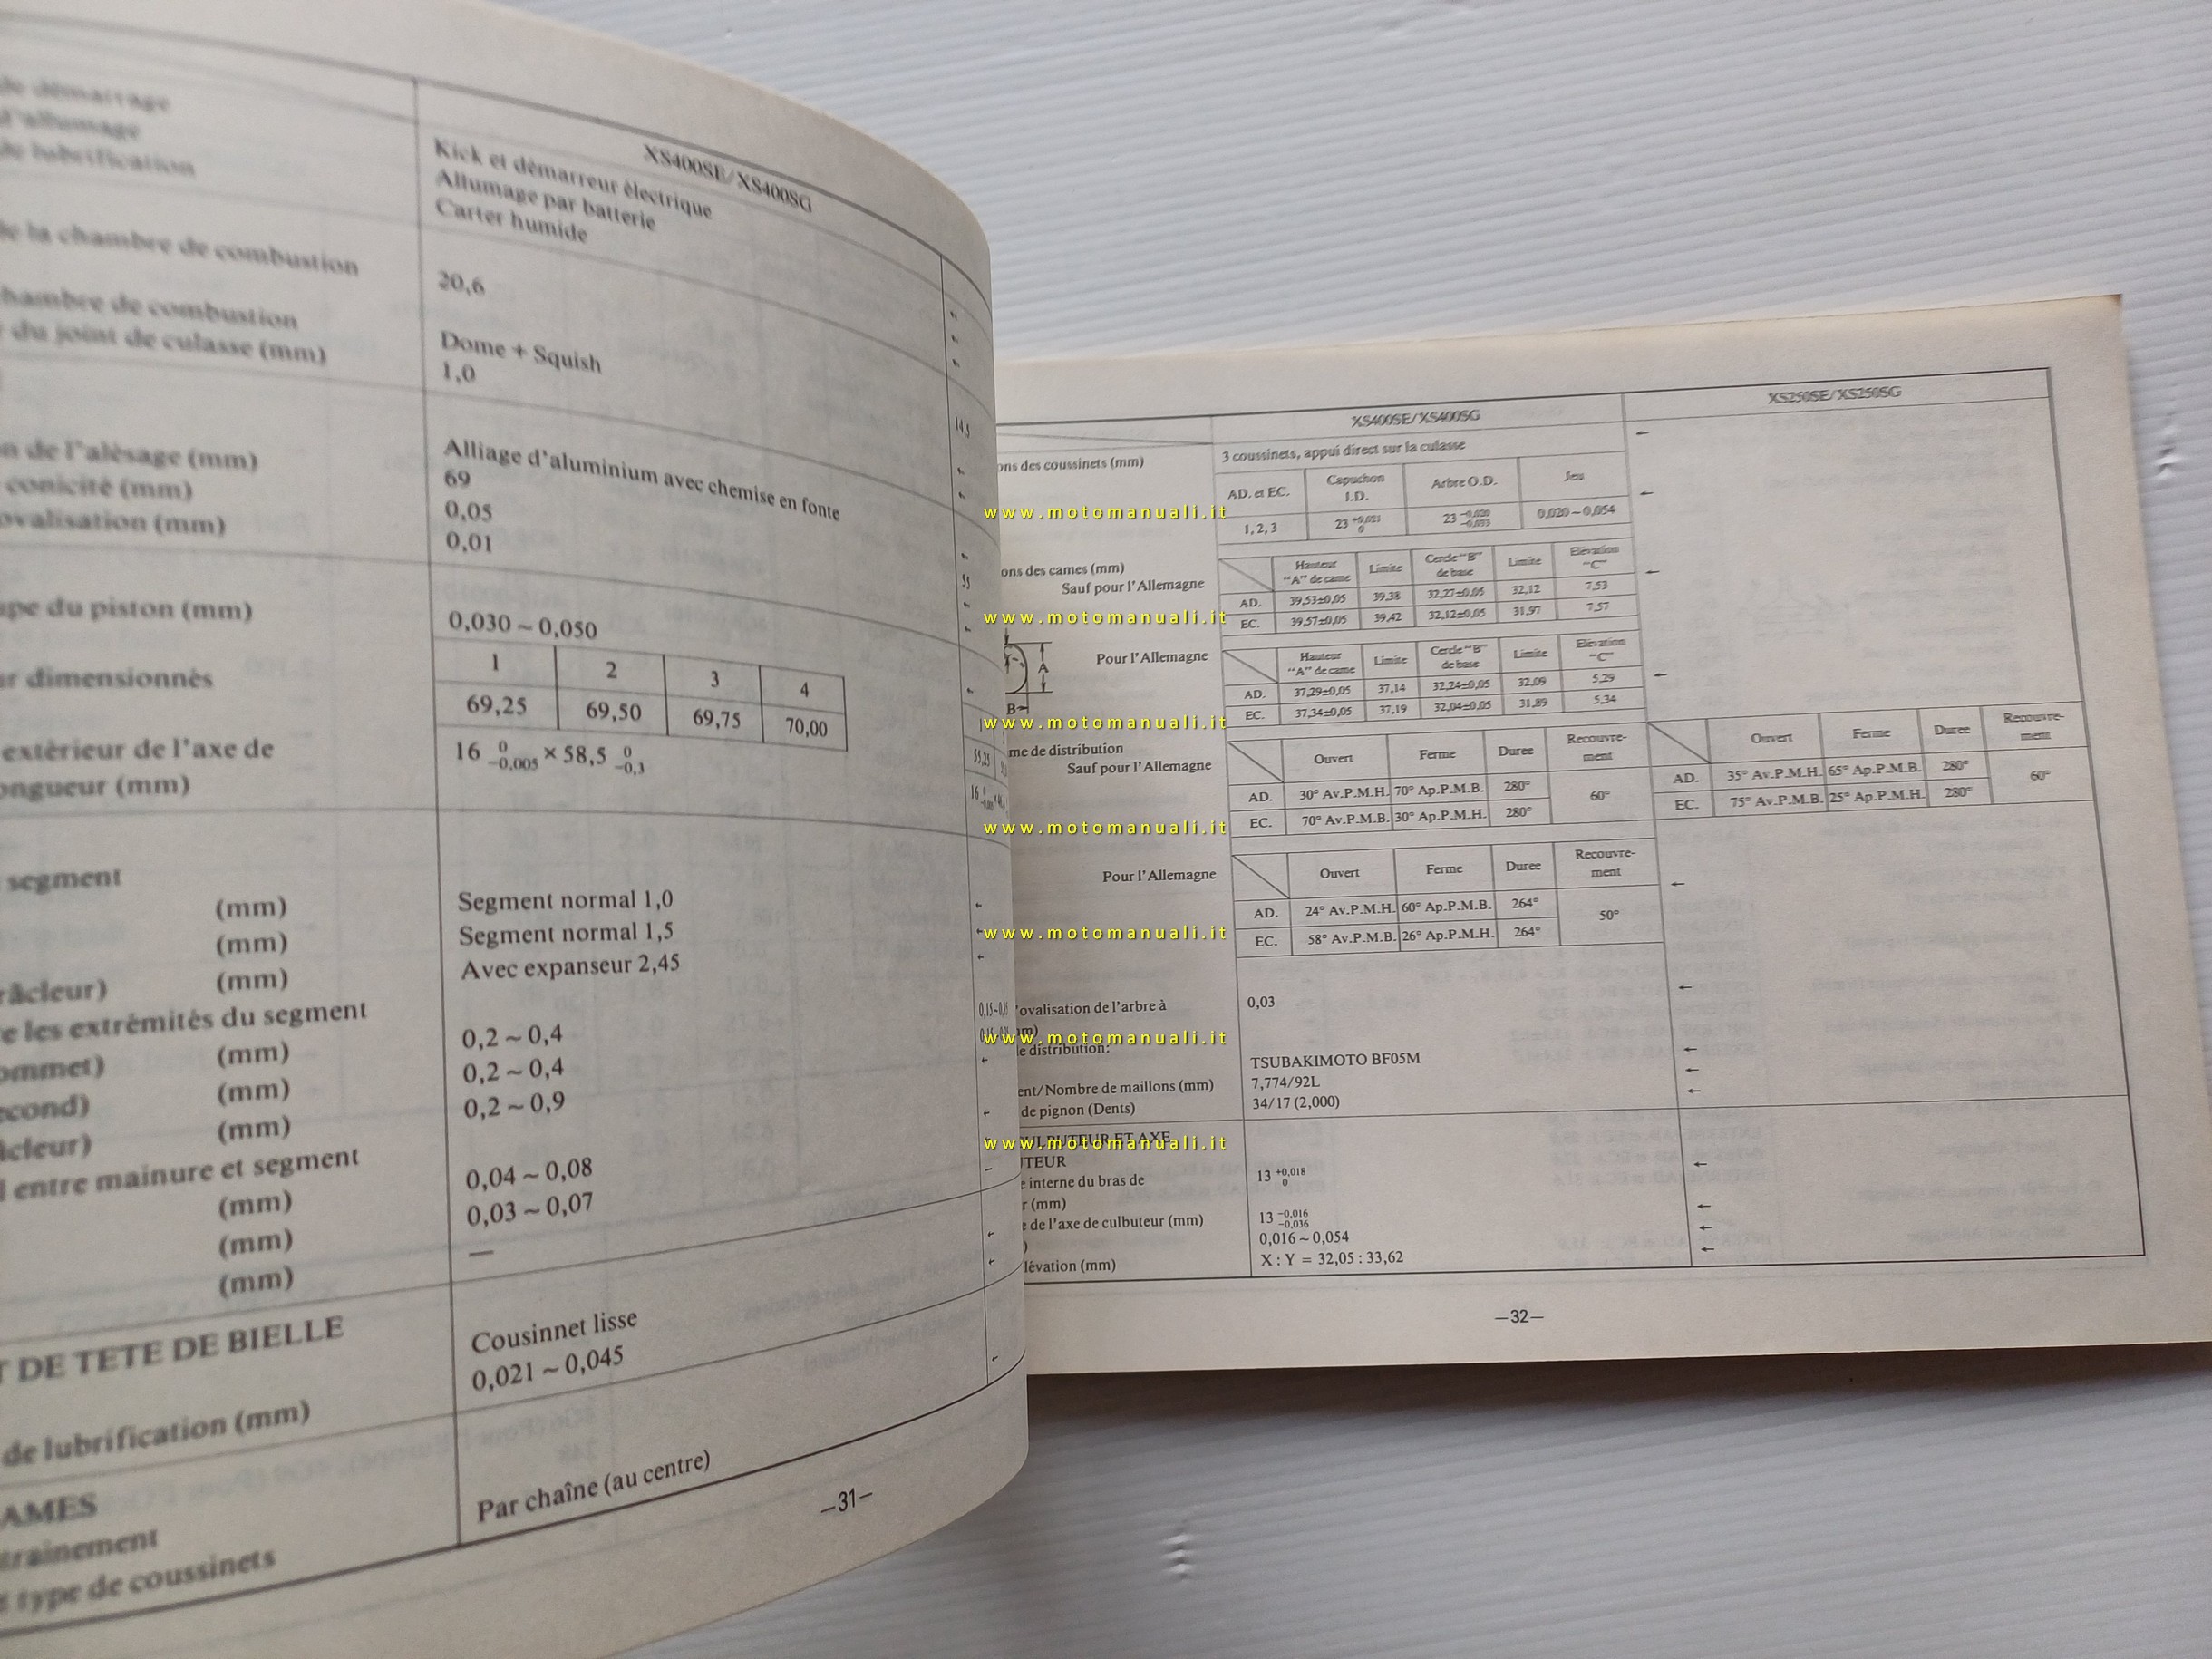 XS400SE/XS400SG
de démarrage Kick et démarreur électrique
d'allumage Allumage par batterie
de lubrification Carter humide
de la chambre de combustion 20,6
chambre de combustion Dome + Squish
du joint de culasse (mm) 1,0
14,5
Alliage d'aluminium avec chemise en fonte
de l'alésage (mm) 69
conicité (mm) 0,05
ovalisation (mm) 0,01
55
du piston (mm) 0,030 ~ 0,050
dimensionnés
1 2 3 4
69,25 69,50 69,75 70,00
55,25
extérieur de l'axe de 16 0 −0,005 × 58,5 0 −0,3
longueur (mm)
segment
(mm) Segment normal 1,0
(mm) Segment normal 1,5
râcleur) (mm) Avec expanseur 2,45
les extrémités du segment
(mm) 0,2 ~ 0,4
(mm) 0,2 ~ 0,4
(mm) 0,2 ~ 0,9
entre mainure et segment
(mm) 0,04 ~ 0,08
(mm) 0,03 ~ 0,07
(mm) —
DE TETE DE BIELLE Cousinnet lisse
0,021 ~ 0,045
de lubrification (mm)
AMES
Par chaîne (au centre)
type de coussinets
—31—
XS400SE/XS400SG XS250SE/XS250SG
3 coussinets, appui direct sur la culasse ←
ons des coussinets (mm)
AD. et EC. Capuchon I.D. Arbre O.D. Jeu ←
1, 2, 3 23 +0,021 0 23 −0,020 −0,033 0,020 ~ 0,054
ons des cames (mm)
Sauf pour l'Allemagne
Hauteur "A" de came Limite Cercle "B" de base Limite Elévation "C" ←
AD. 39,53±0,05 39,38 32,27±0,05 32,12 7,53
EC. 39,57±0,05 39,42 32,12±0,05 31,97 7,57
Pour l'Allemagne
A
B
Hauteur "A" de came Limite Cercle "B" de base Limite Elévation "C" ←
AD. 37,29±0,05 37,14 32,24±0,05 32,09 5,29
EC. 37,34±0,05 37,19 32,04±0,05 31,89 5,34
me de distribution
Sauf pour l'Allemagne
Ouvert Ferme Duree Recouvre-ment Ouvert Ferme Duree Recouvre-ment
AD. 30° Av.P.M.H. 70° Ap.P.M.B. 280° 60° AD. 35° Av.P.M.H. 65° Ap.P.M.B. 280° 60°
EC. 70° Av.P.M.B. 30° Ap.P.M.H. 280° EC. 75° Av.P.M.B. 25° Ap.P.M.H. 280°
Pour l'Allemagne
Ouvert Ferme Duree Recouvre-ment ←
AD. 24° Av.P.M.H. 60° Ap.P.M.B. 264° 50°
EC. 58° Av.P.M.B. 26° Ap.P.M.H. 264°
'ovalisation de l'arbre à 0,03 ←
de distribution: TSUBAKIMOTO BF05M ←
ent/Nombre de maillons (mm) 7,774/92L ←
de pignon (Dents) 34/17 (2,000) ←
ET AXE
TEUR
e interne du bras de 13 +0,018 0 ←
r (mm)
e de l'axe de culbuteur (mm) 13 −0,016 −0,036 ←
) 0,016 ~ 0,054 ←
lévation (mm) X : Y = 32,05 : 33,62 ←
—32—
www.motomanuali.it
www.motomanuali.it
www.motomanuali.it
www.motomanuali.it
www.motomanuali.it
www.motomanuali.it
www.motomanuali.it